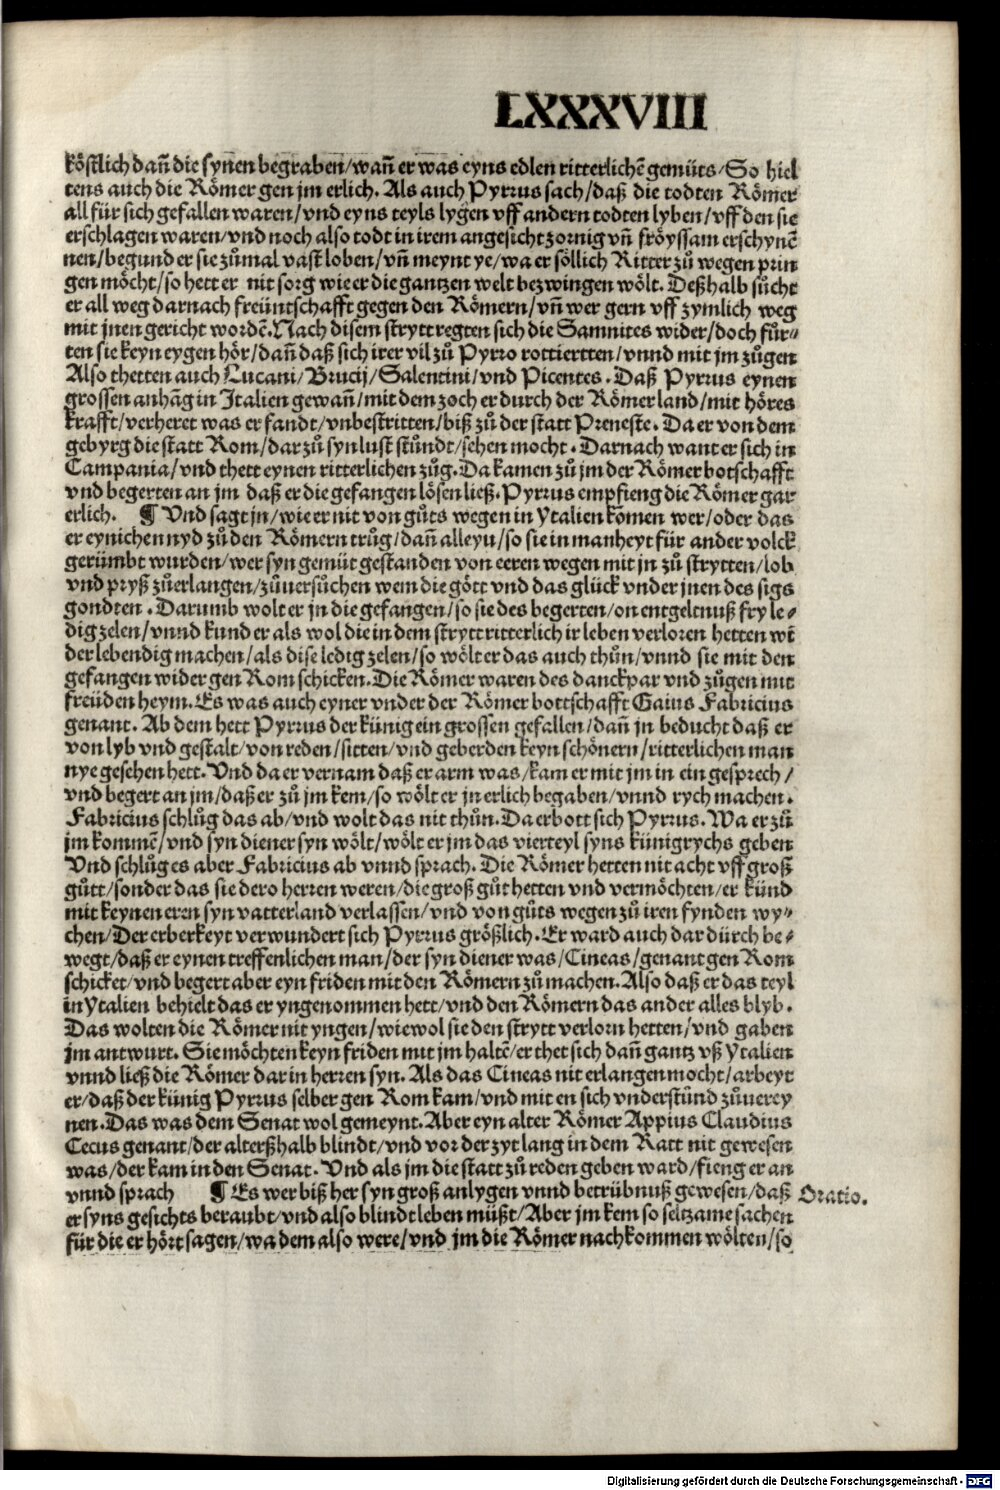 LXXXVIII
köstlich dañ die synen begraben/wañ er was eyns edlen ritterlichē gemüts/So hiel
tens auch die Römer gen jm erlich. Als auch Pyrrus sach/daß die todten Römer
all für sich gefallen waren/vnd eyns teyls lygen vff andern todten lyben/vff den sie
erschlagen waren/vnd noch also todt in irem angesicht zornig vñ fröyssam erschynē
nen/begund er sie zůmal vast loben/vñ meynt ye/wa er söllich Ritter zů wegen prin
gen möcht/so hett er nit sorg wie er die gantzen welt bezwingen wölt. Deßhalb sůcht
er all weg darnach freüntschafft gegen den Römern/vñ wer gern vff zymlich weg
mit jnen gericht wordē. Nach disem strytt regten sich die Samnites wider/doch für⸗
ten sie keyn eygen hör/dañ daß sich irer vil zů Pyrro rottiertten/vnnd mit jm zůgen
Also thetten auch Lucani/Brucij/Salentini/vnd Picentes. Daß Pyrrus eynen
grossen anhāg in Italien gewañ/mit dem zoch er durch der Römer land/mit höres
krafft/verheret was er fandt/vnbestritten/biß zů der statt Preneste. Da er von dem
gebyrg die statt Rom/dar zů syn lust stůndt/sehen mocht. Darnach want er sich in
Campania/vnd thett eynen ritterlichen zůg. Da kamen zů jm der Römer botschafft
vnd begerten an jm daß er die gefangen lösen ließ. Pyrrus empfieng die Römer gar
erlich. ¶ Vnd sagt jn/wie er nit von gůts wegen in Ytalien kōmen wer/oder das
er eynichen nyd zů den Römern trůg/dañ alleyn/so sie in manheyt für ander volck
gerümbt wurden/wer syn gemüt gestanden von eeren wegen mit jn zů strytten/lob
vnd pryß zůerlangen/zůuersůchen wem die gött vnd das glück vnder jnen des sigs
gondten. Darumb wolt er jn die gefangen/so sie des begerten/on entgeltnuß fry le⸗
dig zelen/vnnd kund er als wol die in dem strytt ritterlich ir leben verloren hetten wi
der lebendig machen/als dise ledig zelen/so wölt er das auch thůn/vnnd sie mit den
gefangen wider gen Rom schicken. Die Römer waren des danckpar vnd zůgen mit
freüden heym. Es was auch eyner vnder der Römer bottschafft Gaius Fabricius
genant. Ab dem hett Pyrrus der künig ein grossen gefallen/dañ jn beducht daß er
von lyb vnd gestalt/von reden/sitten/vnd geberden keyn schönern/ritterlichen man
nye gesehen hett. Vnd da er vernam daß er arm was/kam er mit jm in ein gesprech/
vnd begert an jm/daß er zů jm kem/so wölt er jn erlich begaben/vnnd rych machen.
Fabricius schlůg das ab/vnd wolt das nit thůn. Da erbott sich Pyrrus. Wa er zů
jm kommē/vnd syn diener syn wölt/wölt er jm das vierteyl syns künigrychs geben
Vnd schlůg es aber Fabricius ab vnnd sprach. Die Römer hetten nit acht vff groß
gůtt/sonder das sie dero herren weren/die groß gůt hetten vnd vermöchten/er künd
mit keynen eren syn vatterland verlassen/vnd von gůts wegen zů iren fynden wy⸗
chen/Der erberkeyt verwundert sich Pyrrus größlich. Er ward auch dar dürch be⸗
wegt/daß er eynen treffenlichen man/der syn diener was/Cineas/genant gen Rom
schicket/vnd begert aber eyn friden mit den Römern zů machen. Also daß er das teyl
in Ytalien behielt das er yngenommen hett/vnd den Römern das ander alles blyb.
Das wolten die Römer nit yngen/wiewol sie den strytt verlorn hetten/vnd gaben
jm antwurt. Sie möchten keyn friden mit jm haltē/er thet sich dañ gantz vß Ytalien
vnnd ließ die Römer dar in herren syn. Als das Cineas nit erlangen mocht/arbeyt
er/daß der künig Pyrrus selber gen Rom kam/vnd mit en sich vnderstůnd zůuerey
nen. Das was dem Senat wol gemeynt. Aber eyn alter Römer Appius Claudius
Cecus genant/der alterßhalb blindt/vnd vor der zyt lang in dem Ratt nit gewesen
was/der kam in den Senat. Vnd als jm die statt zů reden geben ward/fieng er an
vnnd sprach ¶ Es wer biß her syn groß anlygen vnnd betrübnuß gewesen/daß
Oratio.
er syns gesichts beraubt/vnd also blindt leben müßt/Aber jm kem so seltzame sachen
für die er hört sagen/wa dem also were/vnd jm die Römer nachkommen wölten/so
Digitalisierung gefördert durch die Deutsche Forschungsgemeinschaft - DFG